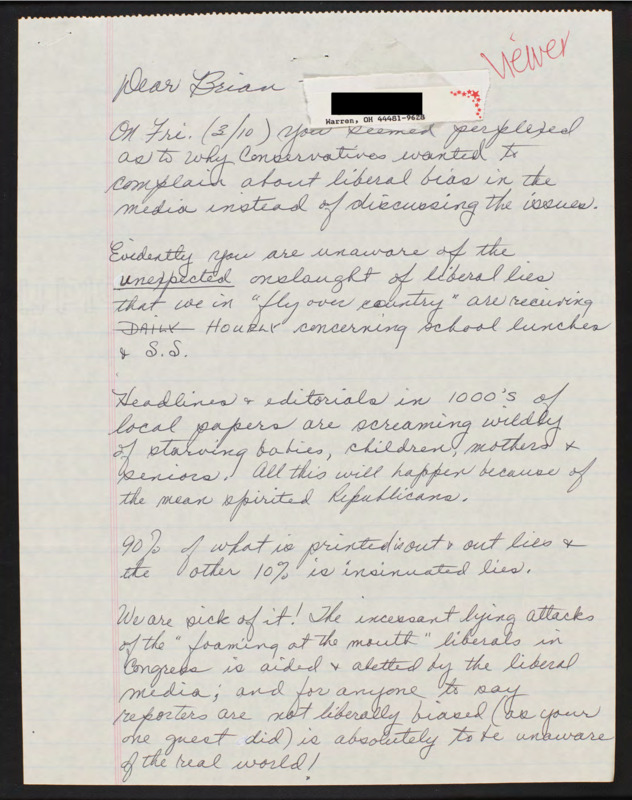 viewer
Dear Brian
Warren, OH 44481-9628
On Fri. (3/10) you seemed perplexed
as to why Conservatives wanted to
complain about liberal bias in the
media instead of discussing the issues.
Evidently you are unaware of the
unexpected onslaught of liberal lies
that we in "fly over country" are receiving
DAILY HOURLY concerning school lunches
& S.S.
Headlines & editorials in 1000's of
local papers are screaming wildly
of starving babies, children, mothers &
seniors. All this will happen because of
the mean spirited Republicans.
90% of what is printed is out & out lies &
the other 10% is insinuated lies.
We are sick of it! The incessant lying attacks
of the "foaming at the mouth" liberals in
Congress is aided & abetted by the liberal
media; and for anyone to say
reporters are not liberally biased (as your
one guest did) is absolutely to be unaware
of the real world!